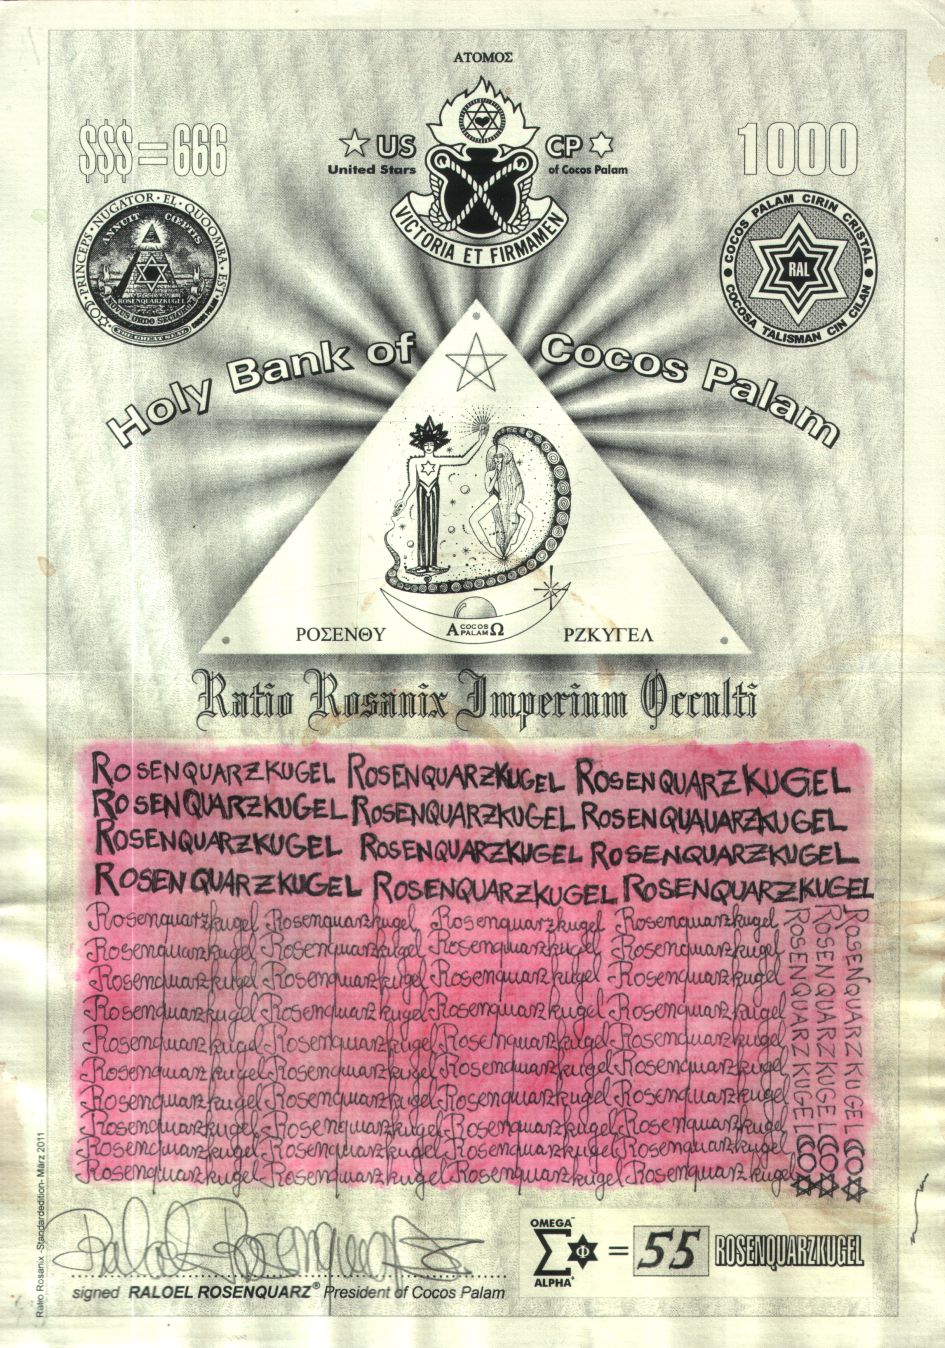 ΑΤΟΜΟΣ
$$$=666
US
United Stars
CP
of Cocos Palam
1000
VICTORIA ET FIRMAMEN
PRINCEPS · NUGATOR · EL · QUOOMBA · EST
ANNUIT CŒPTIS
ROSENQUARZKUGEL
NOVUS ORDO SECLORUM
THE GREAT SEAL
COCOS PALAM CIRIN CRISTAL
RAL
COCOSA TALISMAN CIN CILAN
Holy Bank of Cocos Palam
ΡΟΣΕΝΘΥ
Α COCOS PALAM Ω
ΡΖΚΥΓΕΛ
Ratio Rosanix Imperium Occulti
ROSENQUARZKUGEL ROSENQUARZKUGEL ROSENQUARZKUGEL
ROSENQUARZKUGEL ROSENQUARZKUGEL ROSENQUAUARZKUGEL
ROSENQUARZKUGEL ROSENQUARZKUGEL ROSENQUARZKUGEL
ROSENQUARZKUGEL ROSENQUARZKUGEL ROSENQUARZKUGEL
Rosenquarzkugel Rosenquarzkugel Rosenquarzkugel Rosenquarzkugel
Rosenquarzkugel Rosenquarzkugel Rosenquarzkugel Rosenquarzkugel
Rosenquarzkugel Rosenquarzkugel Rosenquarzkugel Rosenquarzkugel
Rosenquarzkugel Rosenquarzkugel Rosenquarzkugel Rosenquarzkugel
Rosenquarzkugel Rosenquarzkugel Rosenquarzkugel Rosenquarzkugel
Rosenquarzkugel Rosenquarzkugel Rosenquarzkugel Rosenquarzkugel
Rosenquarzkugel Rosenquarzkugel Rosenquarzkugel Rosenquarzkugel
Rosenquarzkugel Rosenquarzkugel Rosenquarzkugel Rosenquarzkugel
Rosenquarzkugel Rosenquarzkugel Rosenquarzkugel Rosenquarzkugel
Rosenquarzkugel Rosenquarzkugel Rosenquarzkugel Rosenquarzkugel
ROSENQUARZKUGEL
ROSENQUARZKUGEL
ROSENQUARZKUGEL
Ratio Rosanix -Standardedition- März 2011
Raloel Rosenquarz
signed RALOEL ROSENQUARZ® President of Cocos Palam
OMEGA
Σ Φ = 55 ROSENQUARZKUGEL
ALPHA